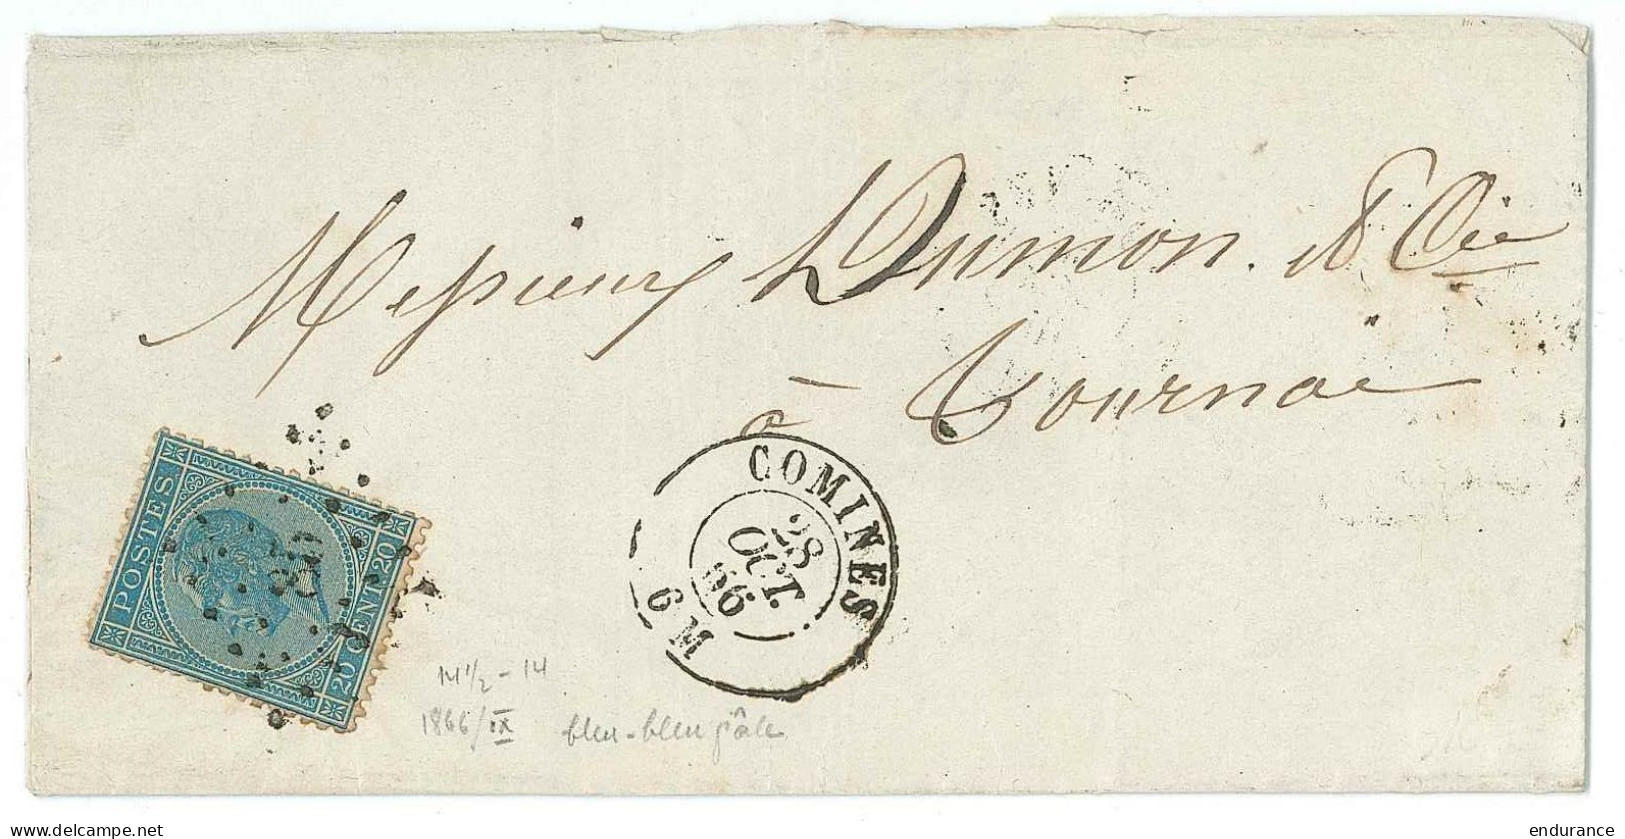 Messieurs Dumon. & Cie
à Tournai
COMINES
28
OCT.
66
6 M
POSTES.
20 CENT. 20
85
14 1/2 - 14
1866/IX bleu-bleu pâle
delcampe.net
endurance